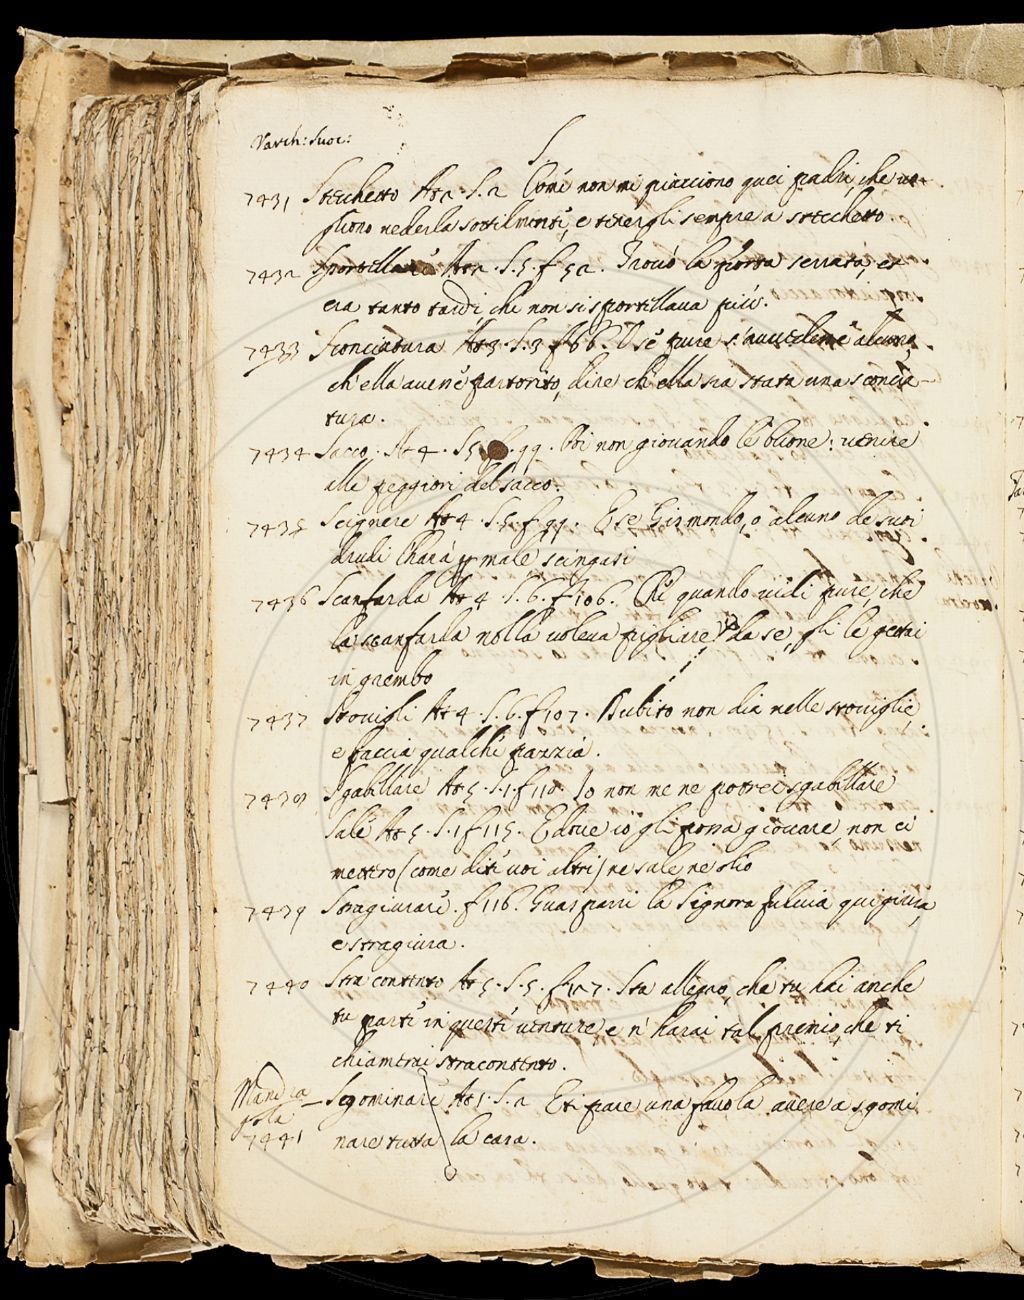 Varch: Suoc:
S.
7431 Stecchetto At 2. S. 2 Come non mi piacciono quei padri, che uo-
gliono uederla sottilmente, e tenergli sempre a stecchetto.
7432 Sportillare At 2. S. 5. f 52. Trouò la porta serrata, et
era tanto tardi che non si sportillaua più.
7433 Sconciatura At 3. S. 3 f 66. O se pure s'auuedeme alcuno,
ch'ella auene partorito, dire ch'ella sia stata una sconcia-
tura.
7434 Sacco. At 4. S 5 f. 99. Poi non giouando le buone: uenire
alle peggiori del sacco.
7435 Scignere At 4. S. 5. f 99. E se Gismondo, o alcuno de suoi
drudi l'harà p male scingasi
7436 Scanfarda At 4. S. 6. f 106. Che quando uidi pure, che
la scanfarda nolla uoleua pigliare da se, gli le gettai
in grembo
7437 Stouigli At 4. S. 6. f 107. Dubito non dia nelle stouiglie,
e faccia qualche pazzia.
7438 Sgabellare At 5. S. 1. f 110. Io non me ne potrei sgabellare
Sale At 5. S. 1 f 115. E doue io gli possa giouare, non ci
mettero (come dite uoi altri) ne sale ne olio
7439 Stragiurare. f 116. Guasparri la Signora Fuluia qui giura,
e stragiura.
7440 Stra contento At 5. S. 5. f 127. Sta allegro, che tu hai anche
tu parte in queste uenture, e n'harai tal premio, che ti
chiamerai stracontento.
Mandra
gola
7441 Sgominare At 1. S. 2 Et pare una fauola auere a sgomi
nare tutta la casa.